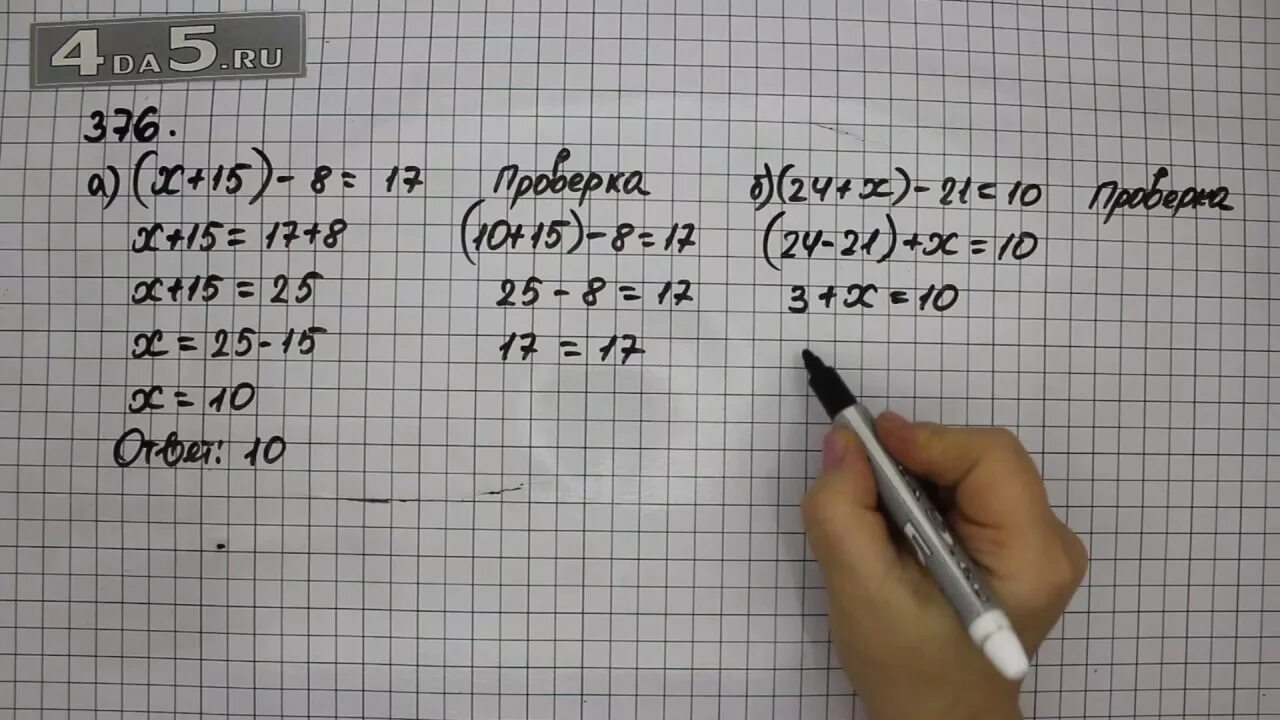 4DA5.RU
376.
а) (x+15) - 8 = 17
x+15 = 17+8
x+15 = 25
x = 25-15
x = 10
Ответ: 10
Проверка
(10+15)-8=17
25 - 8 = 17
17 = 17
б) (24+x) - 21 = 10
(24-21)+x = 10
3 + x = 10
Проверка